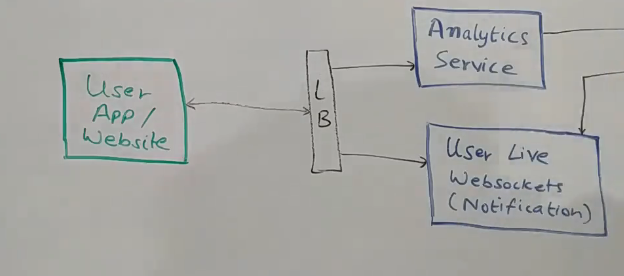 User
App/
Website
L
B
Analytics
Service
User Live
Websockets
(Notification)